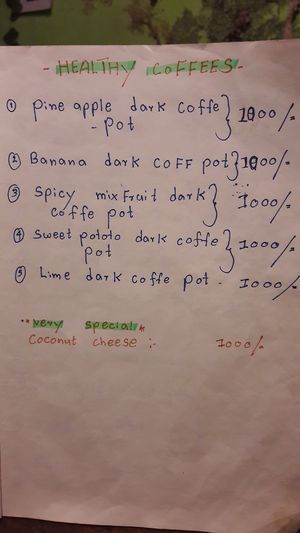 - HEALTHY COFFEES -
① Pine apple dark coffe } 1000/-
- pot
② Banana dark COFF pot } 1000/-
③ Spicy mix Fruit dark } 1000/-
coffe pot
④ Sweet pototo dark coffe } 1000/-
pot
⑤ Lime dark coffe pot. 1000/-
** very special *
Coconut cheese :- 1000/-